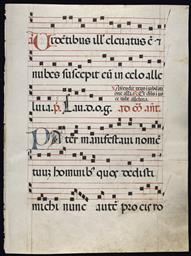 Videntibus ill' elevatus ē τ
nubes suscepit eū in celo alle
luia. p̄. Lau. D. O. G. ad
Pater manifestavi nomē
tuū hominibꝰ quos dedisti
michi nunc autē pro eis ro